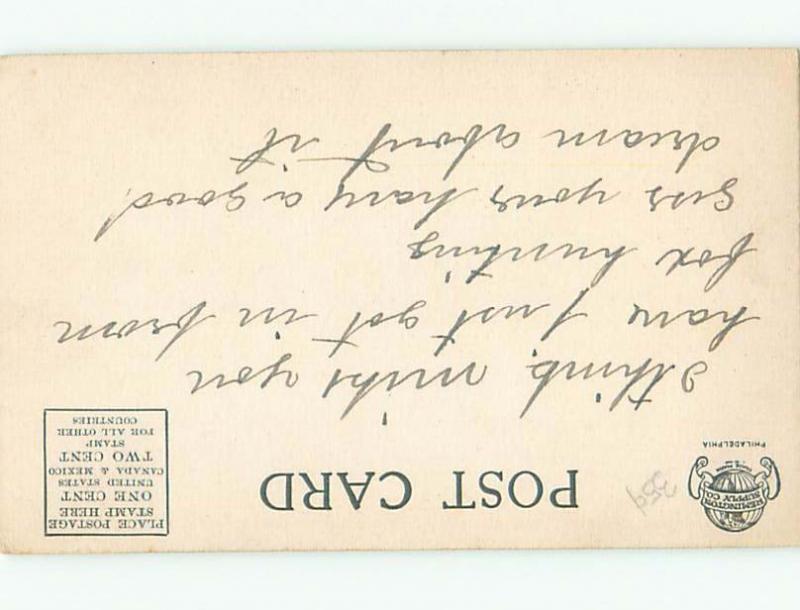 REMINGTON
SUPPLY CO.
PHILADELPHIA
359
POST CARD
PLACE POSTAGE
STAMP HERE
ONE CENT
UNITED STATES
CANADA & MEXICO
TWO CENT
STAMP
FOR ALL OTHER
COUNTRIES
I think, mike you
have Just got in from
fox hunting
gess your hary a good
dream about it